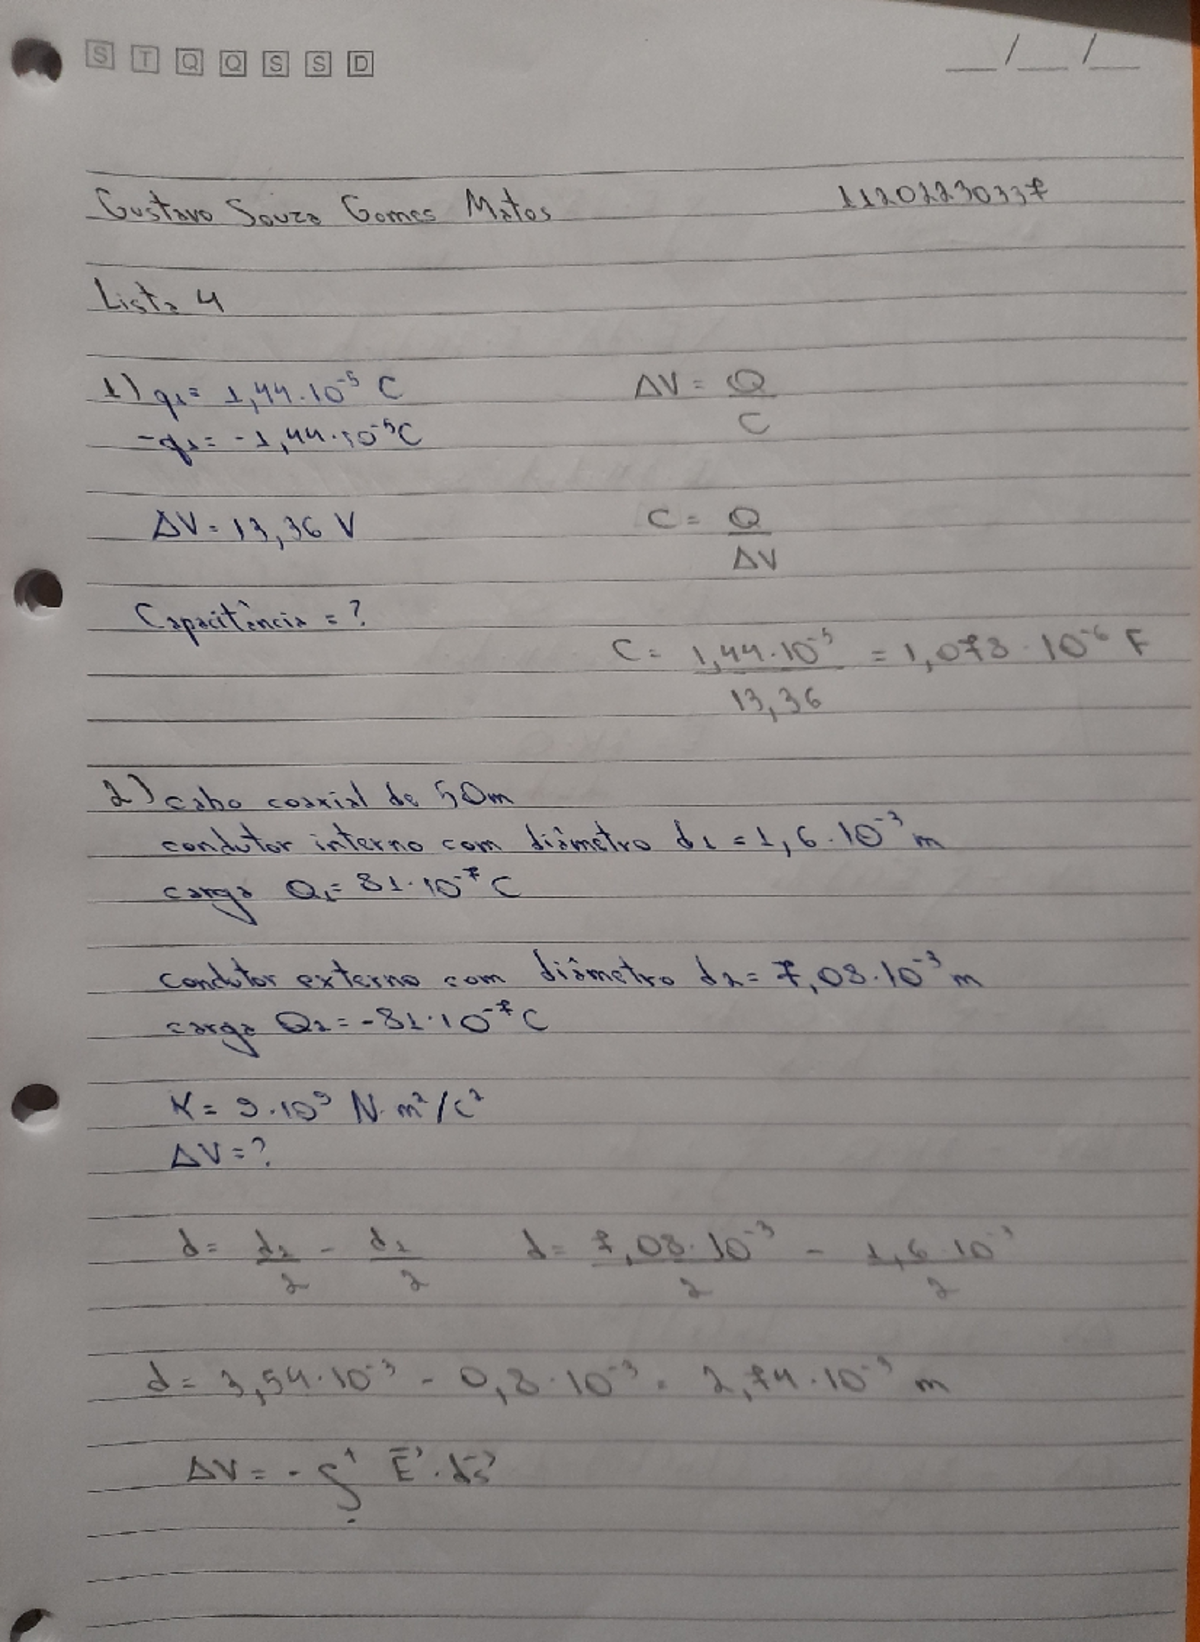 S T Q Q S S D __/__/__
Gustavo Souza Gomes Matos 11202230337
Lista 4
1) q₁ = 1,44·10⁻⁵ C ΔV = Q/C
-q₁ = -1,44·10⁻⁵ C
ΔV = 13,36 V C = Q/ΔV
Capacitância = ?
C = 1,44·10⁻⁵/13,36 = 1,078·10⁻⁶ F
2) cabo coaxial de 50m
condutor interno com diâmetro d₁ = 1,6·10⁻³ m
carga Q₁ = 81·10⁻⁷ C
condutor externo com diâmetro d₂ = 7,08·10⁻³ m
carga Q₂ = -81·10⁻⁷ C
K = 9·10⁹ N·m²/C²
ΔV = ?
d = d₂/2 - d₁/2 d = 7,08·10⁻³/2 - 1,6·10⁻³/2
d = 3,54·10⁻³ - 0,8·10⁻³ = 2,74·10⁻³ m
ΔV = -∫ E⃗·ds⃗